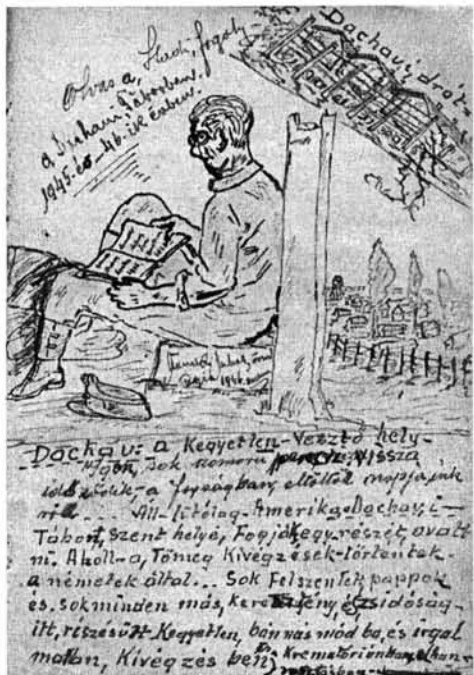 Olvas a, Hadi, fogoly
a Dachaui, Táborban.
1945. és - 46. ik évben.
Dachaui, drót.
1946.
Dachau: a Kegyetlen-Vesztő hely-
sok nomorú vissza
a fogságban, eltöltött napjaink
ról... Áll-litólag-Amerika-Dachau, i-
Tábort, szent helyé, Fogja, egy részét, avatt
ni. Aholl-a, Tömeg Kivégzések-történtek.
a németek által... Sok Felszentelt, pappok
és. sok minden más, keresztény, és, zsidóság-
itt, részesült Kegyetlen, bánnás mód ba, és irgal
matlan, Kivégzés ben Krematóriumban,